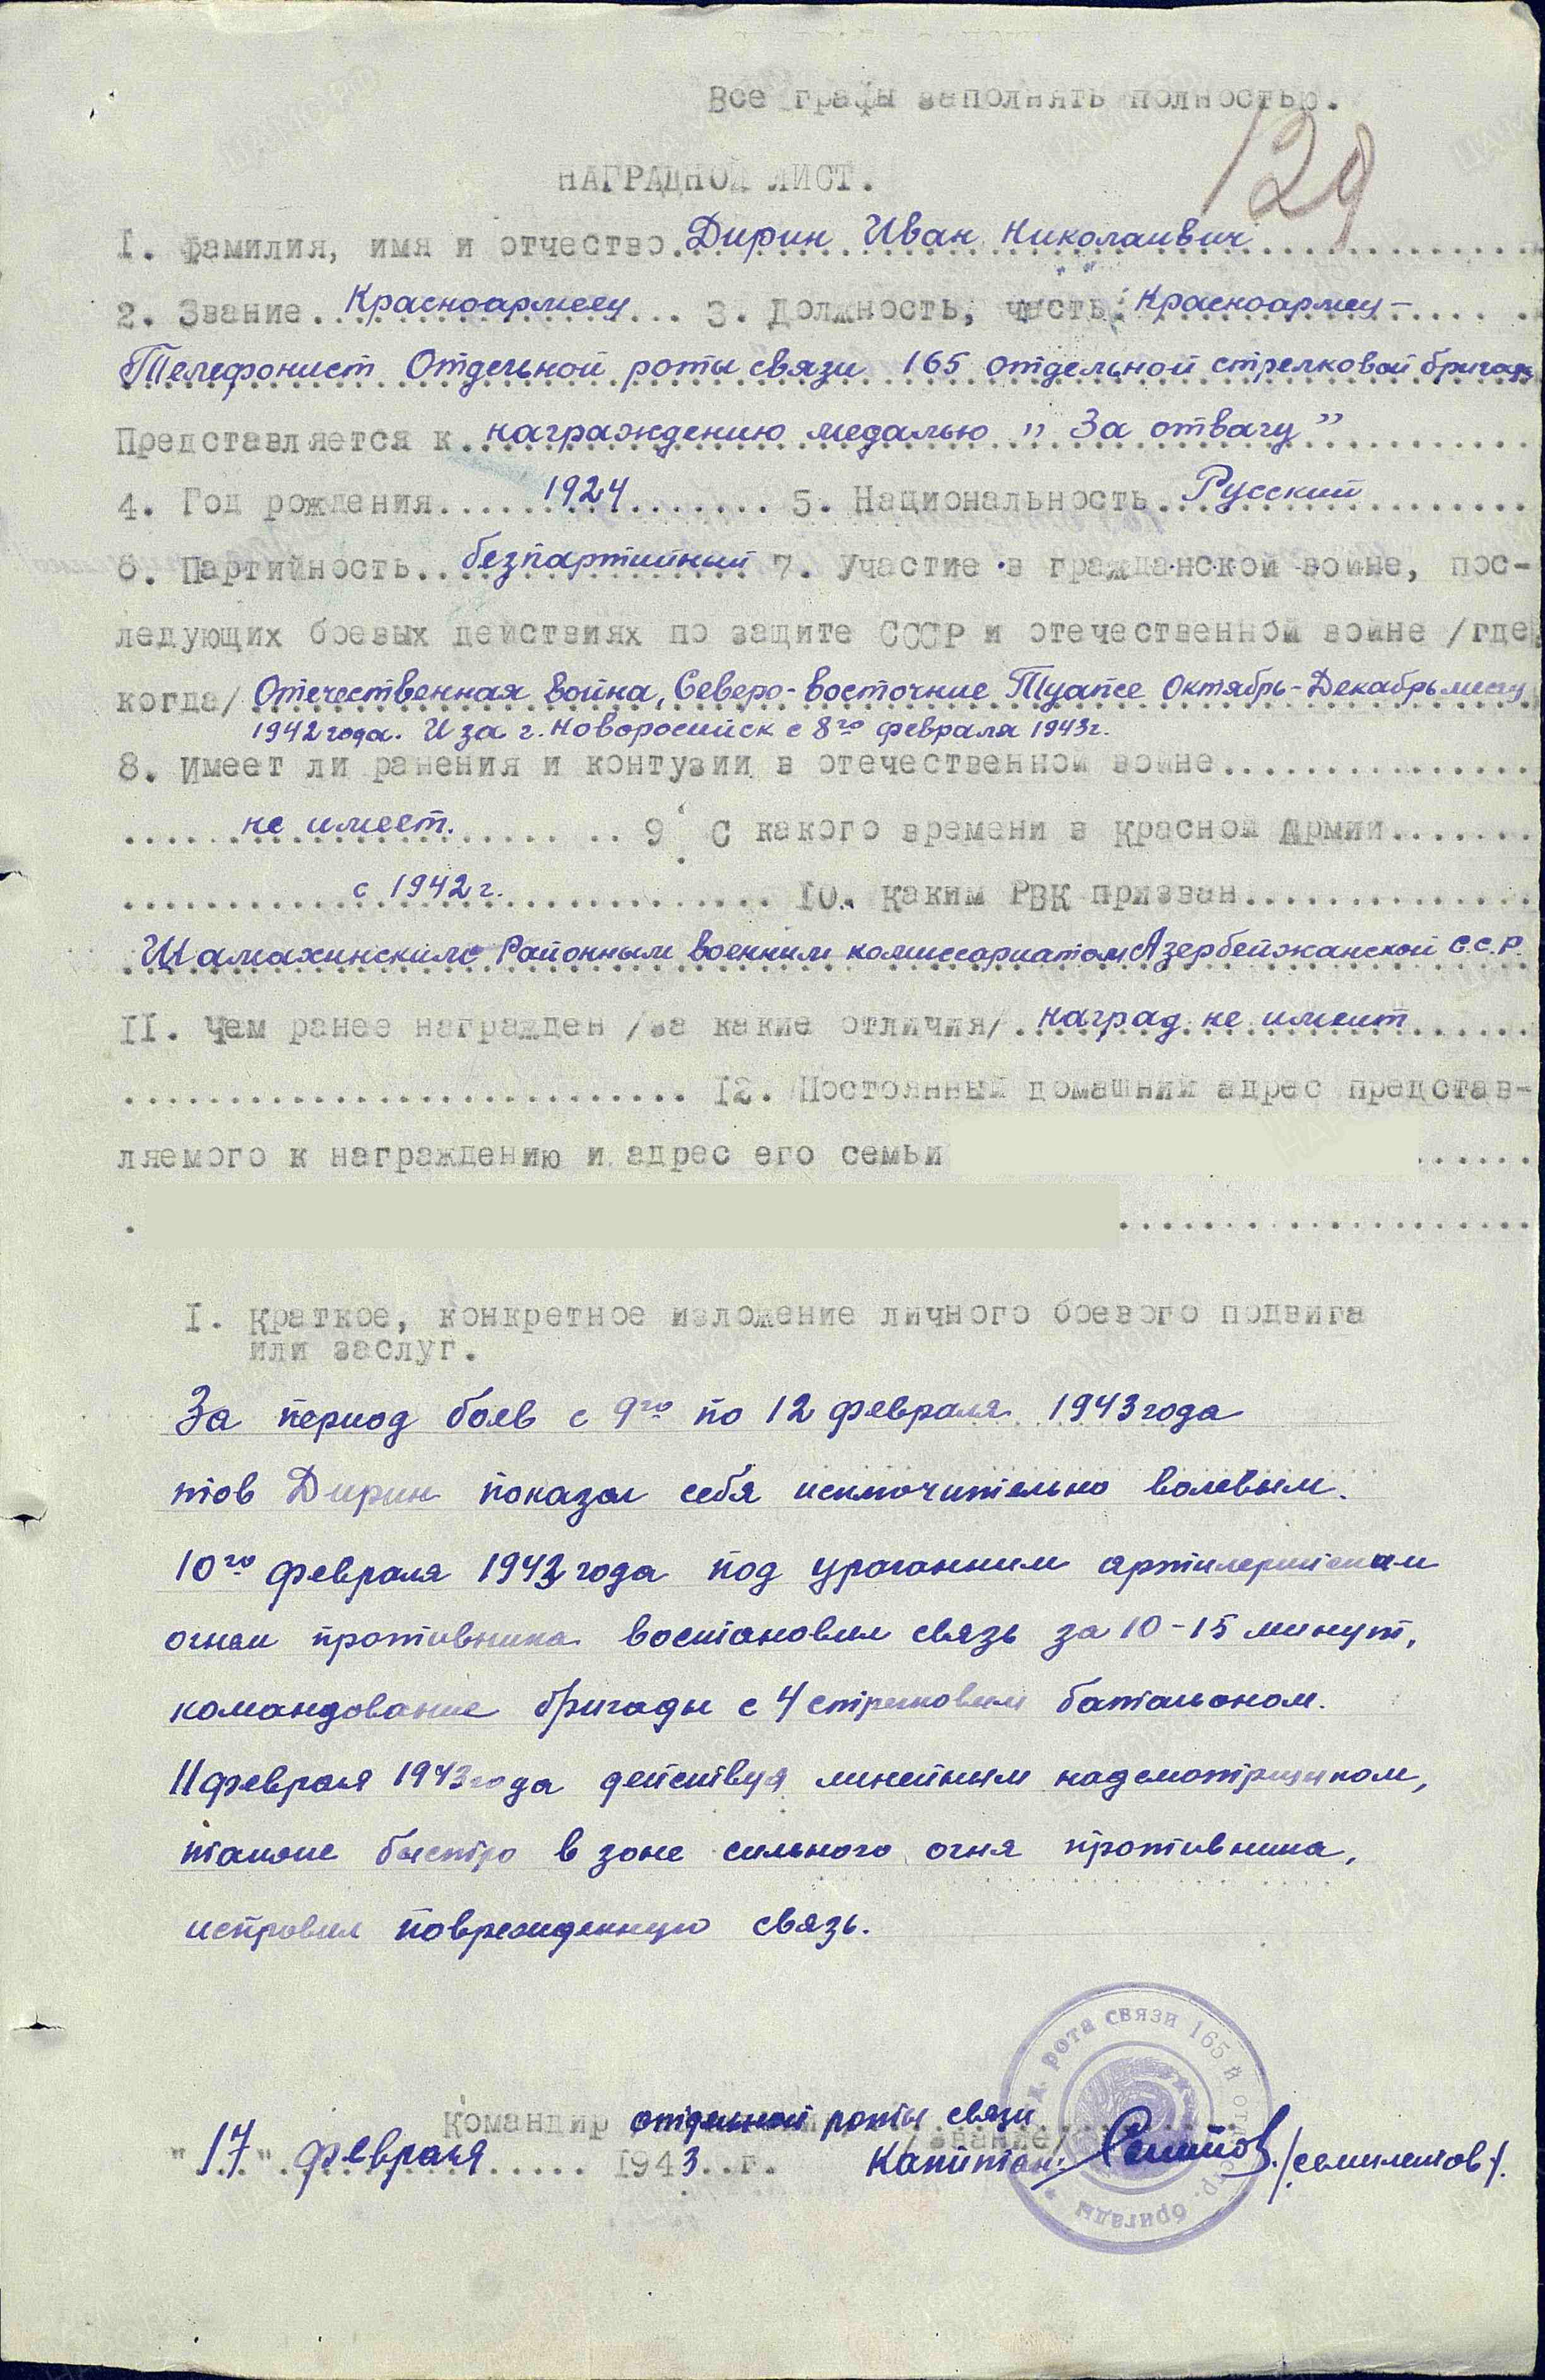 Все графы заполнять полностью.
129
НАГРАДНОЙ ЛИСТ.
I. Фамилия, имя и отчество Дирин Иван Николаивич
2. Звание Красноармеец 3. Должность, часть: Красноармец-
Телефонист Отдельной роты связи 165 отдельной стрелковой бригады
Представляется к награждению медалью „За отвагу"
4. Год рождения 1924 5. Национальность Русский
6. Партийность безпартийный 7. Участие в гражданской войне, пос-
ледующих боевых действиях по защите СССР и отечественной войне /где
когда/ Отечественная война, Северо-восточние Туапсе Октябрь-Декабрь месяц
1942 года. И за г. Новоросийск с 8го февраля 1943г.
8. Имеет ли ранения и контузии в отечественной войне
не имеет. 9. С какого времени в Красной Армии
с 1942 г. 10. Каким РВК призван
Шамахинским Районным военним комиссариатом Азербейжанской С.С.Р.
II. Чем ранее награжден /за какие отличия/ наград не имеит
12. Постоянный домашний адрес представ-
ляемого к награждению и адрес его семьи
I. Краткое, конкретное изложение личного боевого подвига
или заслуг.
За период боев с 9го по 12 февраля 1943 года
тов Дирин показал себя исключительно волевым.
10го февраля 1943 года под ураганним артилерийским
огнем противника востановил связь за 10-15 минут,
командование бригады с 4 стрелковым батальоном.
11 февраля 1943 года действуя линейным надсмотрщиком,
также быстро в зоне сильного огня противника,
исправил поврежденную связь.
рота связи 165 й отд. стр. бригады
Командир отдельной роты связи
/звание/
"17" февраля 1943 г. Капитан: /Семилетов/.